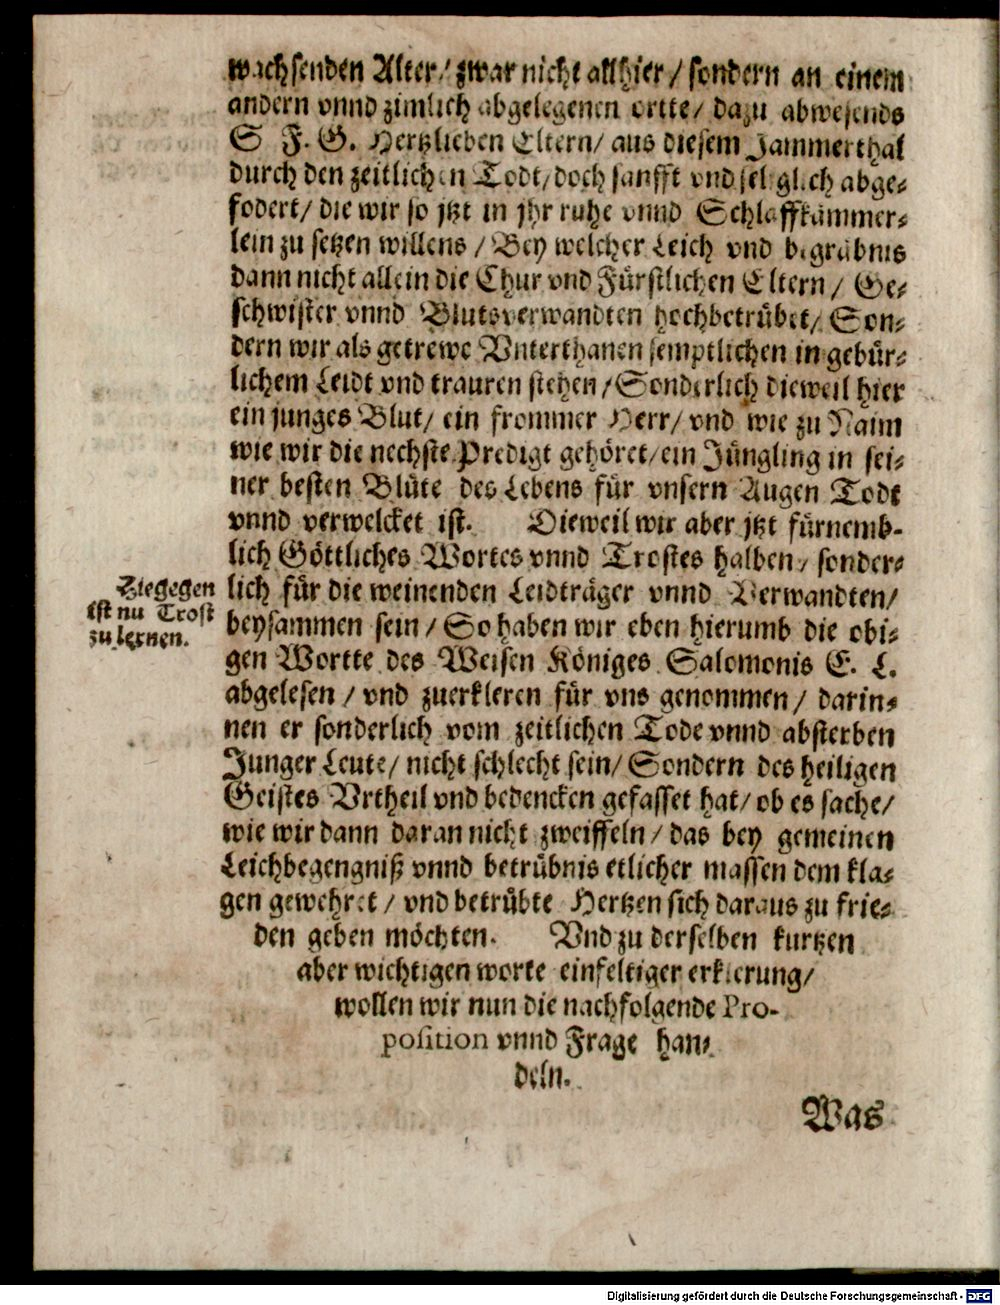 wachsenden Alter/ zwar nicht allhier/ sondern an einem
andern vnnd zimlich abgelegenen ortte/ dazu abwesends
S F. G. Hertzlieben Eltern/ aus diesem Jammerthal
durch den zeitlichen Todt/ doch sanfft vnd seliglich abge-
fodert/ die wir so jtzt in jhr ruhe vnnd Schlaffkämmer-
lein zu setzen willens/ Bey welcher Leich vnd begräbnis
dann nicht allein die Chur vnd Fürstlichen Eltern/ Ge-
schwister vnnd Blutsverwandten hochbetrübet/ Son-
dern wir als getrewe Vnterthanen semptlichen in gebür-
lichem Leidt vnd trauren stehen/ Sonderlich dieweil hier
ein junges Blut/ ein frommer Herr/ vnd wie zu Naim
wie wir die nechste Predigt gehöret/ ein Jüngling in sei-
ner besten Blüte des Lebens für vnsern Augen Todt
vnnd verwelcket ist. Dieweil wir aber jtzt fürnemb-
lich Göttliches Wortes vnnd Trostes halben/ sonder-
Hiegegen
ist nu Trost
zu lernen.
lich für die weinenden Leidträger vnnd Verwandten/
beysammen sein/ So haben wir eben hierumb die obi-
gen Wortte des Weisen Königes Salomonis E. L.
abgelesen/ vnd zuerkleren für vns genommen/ darin-
nen er sonderlich vom zeitlichen Tode vnnd absterben
Junger Leute/ nicht schlecht sein/ Sondern des heiligen
Geistes Vrtheil vnd bedencken gefasset hat/ ob es sache/
wie wir dann daran nicht zweiffeln/ das bey gemeinen
Leichbegengniß vnnd betrübnis etlicher massen dem kla-
gen gewehret/ vnd betrübte Hertzen sich daraus zu frie-
den geben möchten. Vnd zu derselben kurtzen
aber wichtigen worte einfeltiger erklerung/
wollen wir nun die nachfolgende Pro-
position vnnd Frage han-
deln.
Was
Digitalisierung gefördert durch die Deutsche Forschungsgemeinschaft - DFG